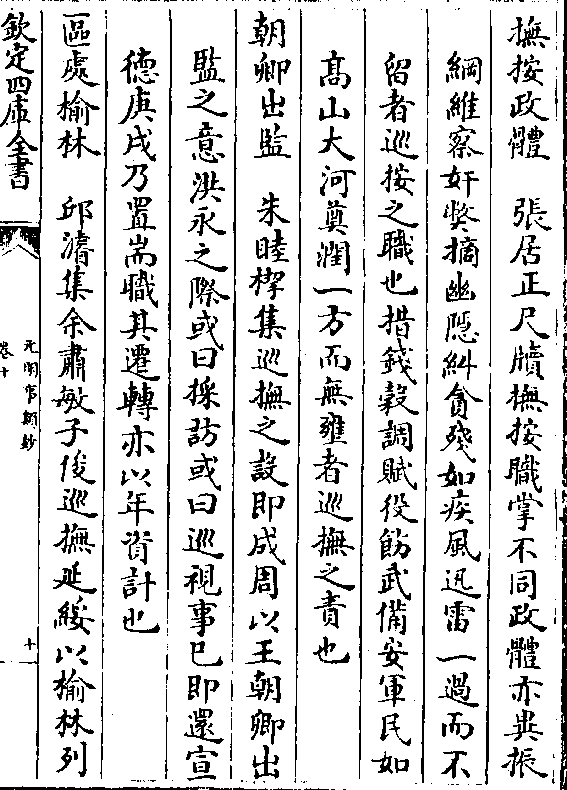 撫按政體　張居正尺牘撫按職掌不同政體亦異振
綱維察奸弊摘幽隱糾貪殘如疾風迅雷一過而不
留者巡按之職也措錢穀調賦役飭武備安軍民如
高山大河奠潤一方而無壅者巡撫之責也
朝卿出監　朱睦㮮集巡撫之設即成周以王朝卿出
監之意洪永之際或曰採訪或曰巡視事已即還宣
德庚戌乃置耑職其遷轉亦以年資計也
區處榆林　邱濬集余肅敏子俊巡撫延綏以榆林列
欽定四庫全書
卷十
元明事類鈔
十